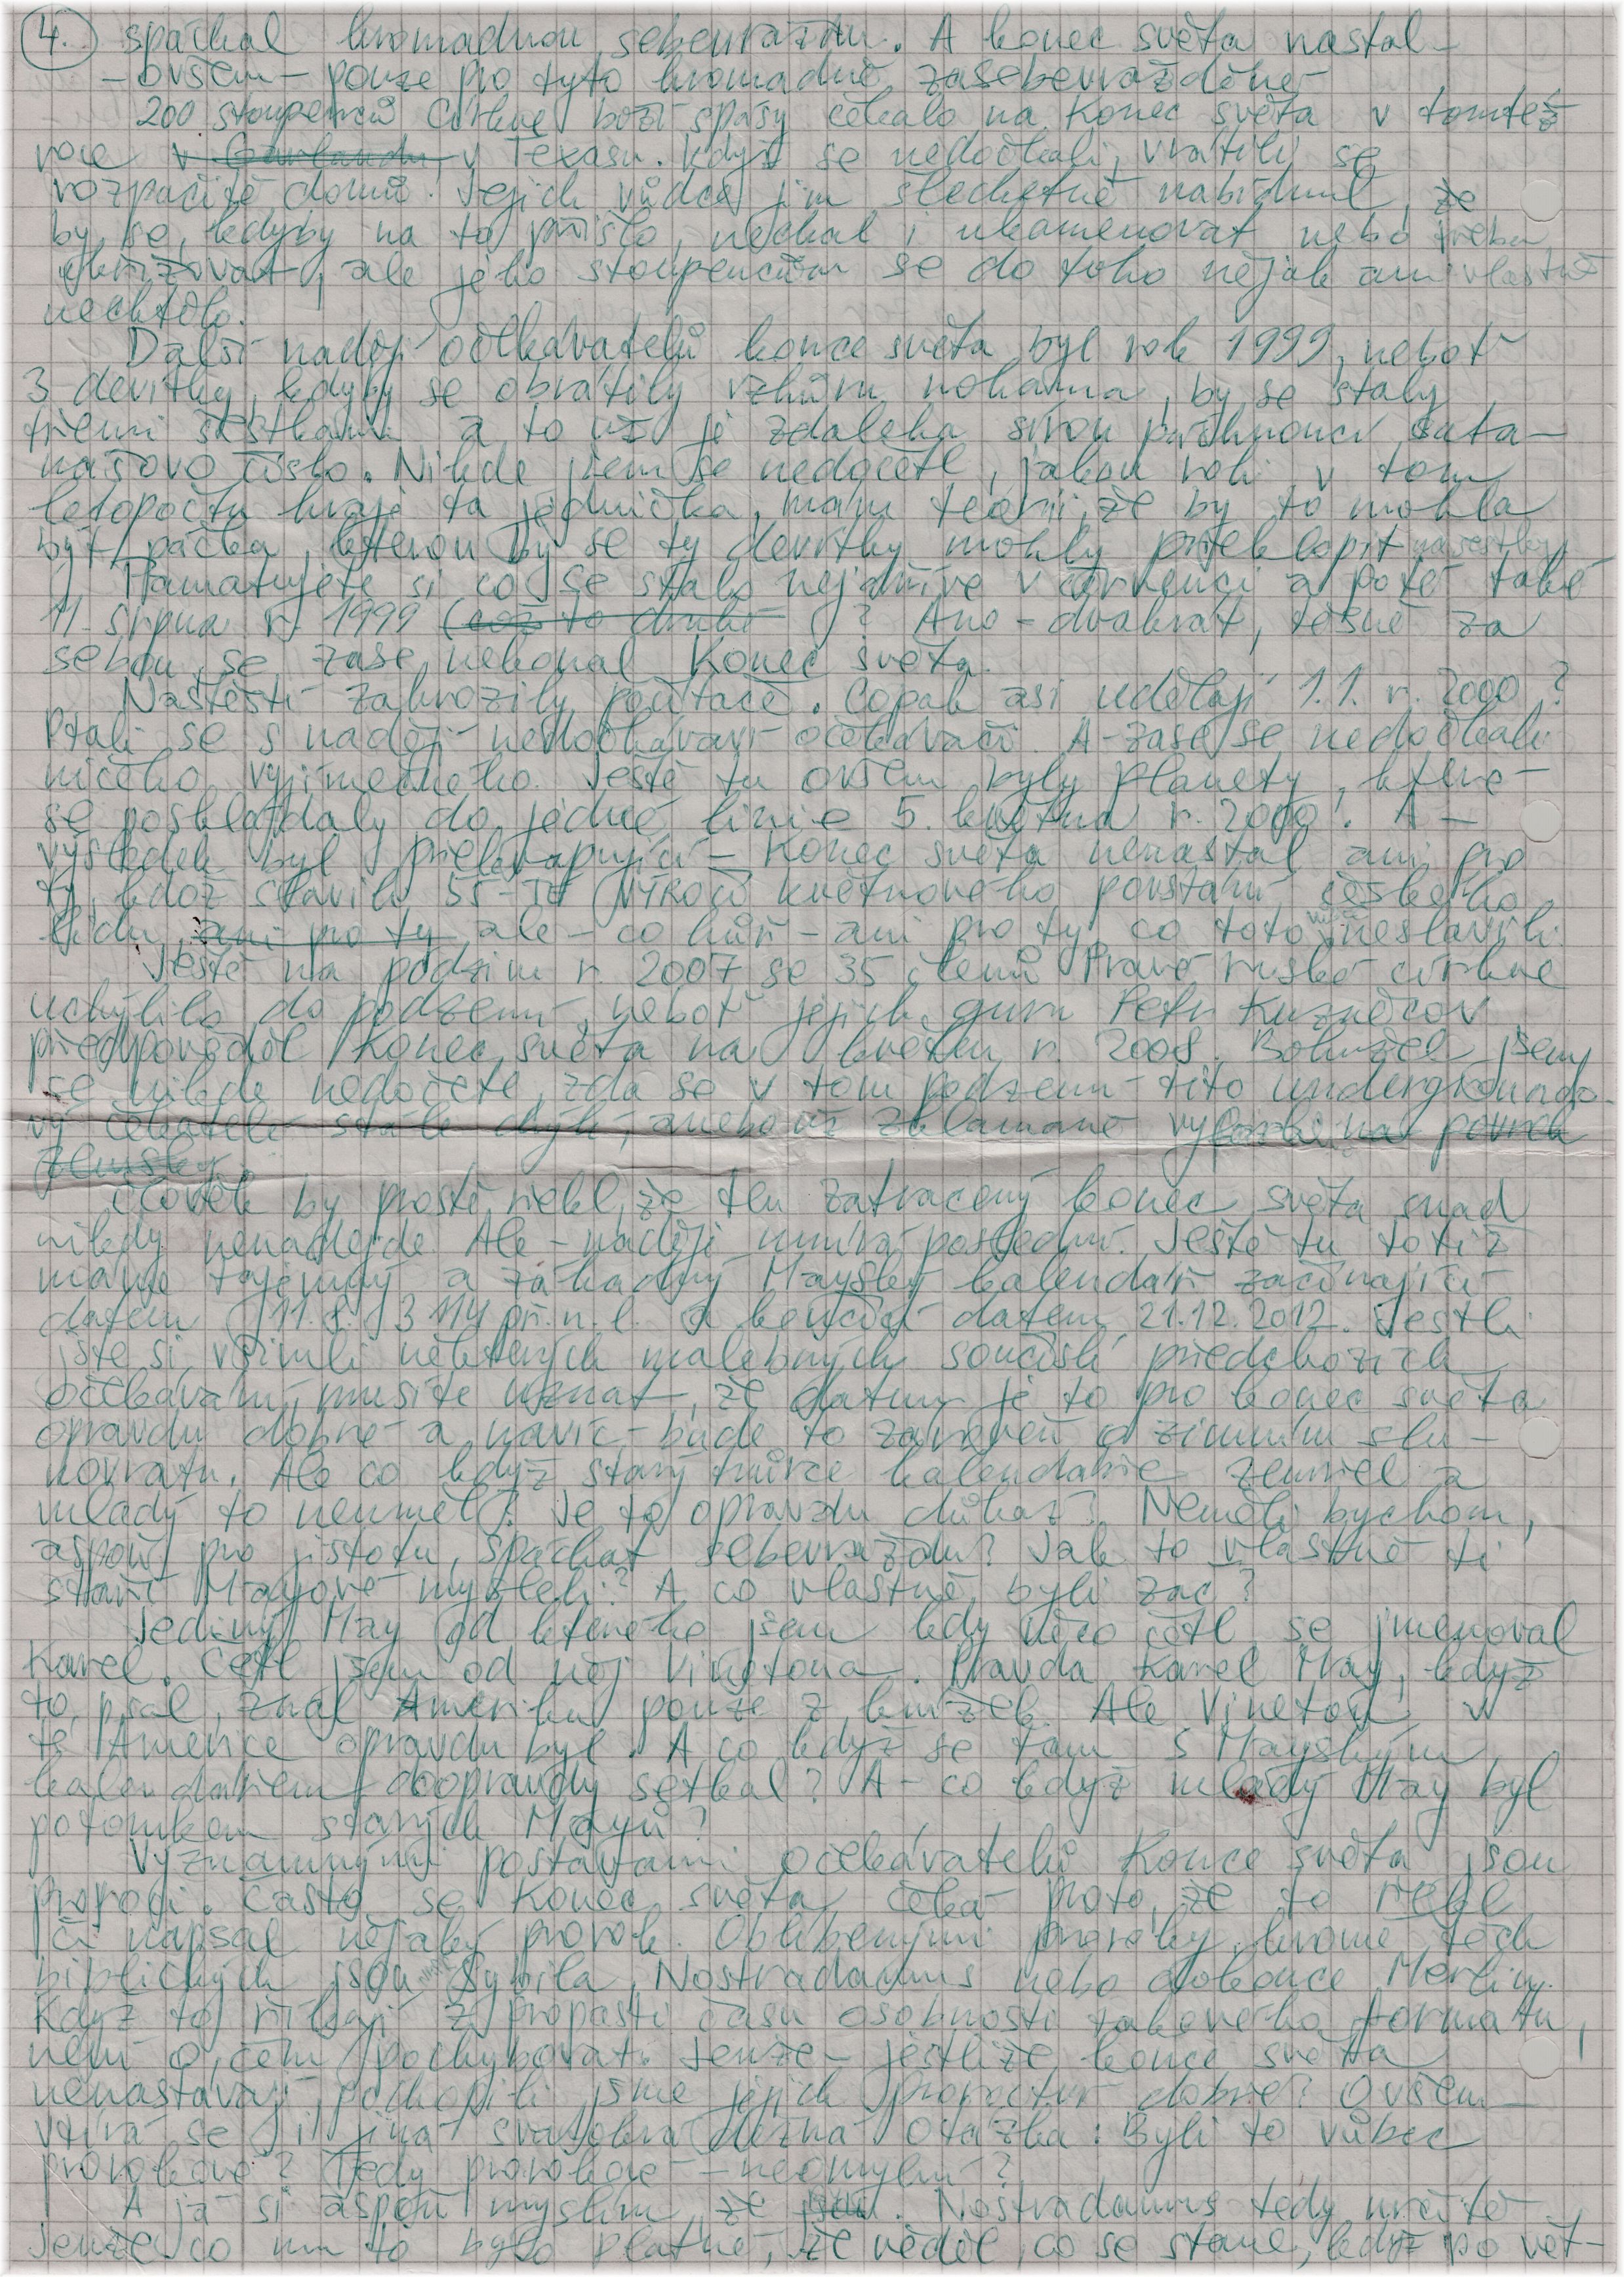 4. spáchal hromadnou sebevraždu. A konec světa nastal –
– ovšem – pouze pro tyto hromadně zasebevražděné
200 stoupenců Církve boží spásy čekalo na Konec světa v tomtéž
roce v Garlandu, v Texasu. Když se nedočkali, vrátili se
rozpačitě domů. Jejich vůdce jim šlechetně nabídnul, že
by se, kdyby na to přišlo, nechal i ukamenovat nebo třeba
ukřižovat, ale jeho stoupencům se do toho nějak ani vlastně
nechtělo.
Další nadějí očekávatelů konce světa byl rok 1999, neboť
3 devítky, kdyby se obrátily vzhůru nohama, by se staly
třemi šestkami a to už je zdaleka sírou páchnoucí sata–
našovo číslo. Nikde jsem se nedočetl, jakou roli v tom
letopočtu hraje ta jednička, mám teorii, že by to mohla
být páčka, kterou by se ty devítky mohly překlopit na šestky
Pamatujete si co se stalo nejdříve v červenci a poté také
11. srpna r. 1999 (což to druhé ? Ano – dvakrát, těsně za
sebou, se zase nekonal Konec světa.
Naštěstí zahrozily počítače. Copak asi udělají 1.1. r. 2000?
Ptali se s nadějí nedočkaví očekávači. A – zase se nedočkali
ničeho vyjímečného. Ještě tu ovšem byly planety, které
se poskládaly do jedné linie 5. května r. 2000. A –
výsledek byl překvapující – Konec světa nenastal ani pro
ty, kdož slavili 55-té výročí květnového povstání českého
lidu, ani pro ty, ale – co hůř – ani pro ty, co toto neslavili.
Ještě na podzim r. 2007 se 35 členů Pravé ruské církve
uchýlilo do podzemí, neboť jejich guru Petr Kuzněcov
předpověděl Konec světa na květen r. 2008. Bohužel jsem
se nikde nedočetl, zda se v tom podzemí tito undergroundo-
ví čekatelé stále chýlí, anebo již zklamaně na povrch
zemský.
Člověk by prostě řekl, že ten zatracený konec světa snad
nikdy nenadejde. Ale – naděje umírá poslední. Ještě tu totiž
máme tajemný a záhadný Mayský kalendář začínající
datem 11.8. 3114 př. n. l. a končící datem 21.12.2012. Jestli
jste si všimli některých malebných součislí předchozích
očekávání, musíte uznat, že datum je to pro konec světa
opravdu dobré a navíc – bude to zároveň o zimním slu–
novratu. Ale co když starý tvůrce kalendáře zemřel a
mladý to neuměl? Je to opravdu důkaz? Neměli bychom,
aspoň pro jistotu, spáchat sebevraždu? Jak to vlastně ti
staří Mayové mysleli? A co vlastně byli zač?
Jediný May od kterého jsem kdy něco četl se jmenoval
Karel. Četl jsem od něj Vinetoua. Pravda Karel May, když
to psal, znal Ameriku pouze z knížek. Ale Vinetou v
té Americe opravdu byl. A co když se tam s Mayským
kalendářem doopravdy setkal? A – co když mladý May byl
potomkem starých Mayů?
Význačnými postavami očekávatelů Konce světa jsou
proroci. Často se Konec světa čeká proto, že to řekl
či napsal nějaký prorok. Oblíbenými proroky, kromě těch
biblických jsou Sybila, Nostradamus nebo dokonce Merlin.
Když to říkají z propasti času osobnosti takového formátu,
není o čem pochybovat. Jenže – jestliže konce světa
nenastávají, pochopili jsme jejich proroctví dobře? Ovšem –
vtírá se i jiná svatokrádežná otázka: Byli to vůbec
prorokové? Tedy prorokové – neomylní?
A já si aspoň myslím, že jsou. Nostradamus tedy určitě
jenže co mu to bylo platné, že věděl, co se stane, když po vět–